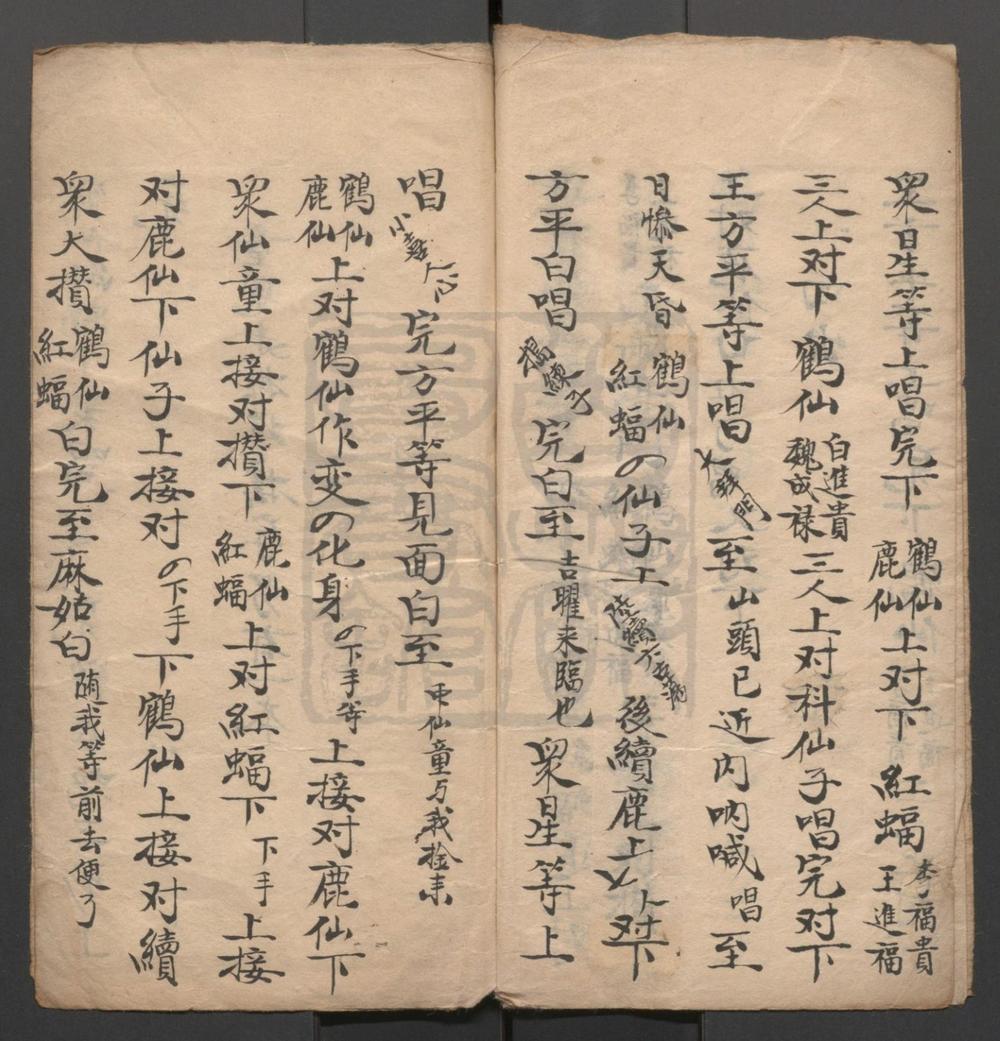 眾星等上唱完下 鶴仙 鹿仙 上对下 紅蝠 李福貴 王進福
三人上对下 鶴仙 白進貴 魏成禄 三人上对科仙子唱完对下
王方平等上唱 至山頭已近内呐喊唱至
日惨天昏 鶴仙 紅蝠 の仙子上 後續鹿上 对下
方平白唱 搗練子 完白至 吉曜来臨也 眾星等上
唱 完方平等見面白至 仙童与我捡来
鶴仙 鹿仙 上对鶴仙作变の化身 の下手等 上接对鹿仙下
眾仙童上接对攅下 鹿仙 紅蝠 上对紅蝠下 下手 上接
对鹿仙下仙子上接对 の下手 下鶴仙上接对續
眾大攅 鶴仙 紅蝠 白完至麻姑白 随我等前去便了